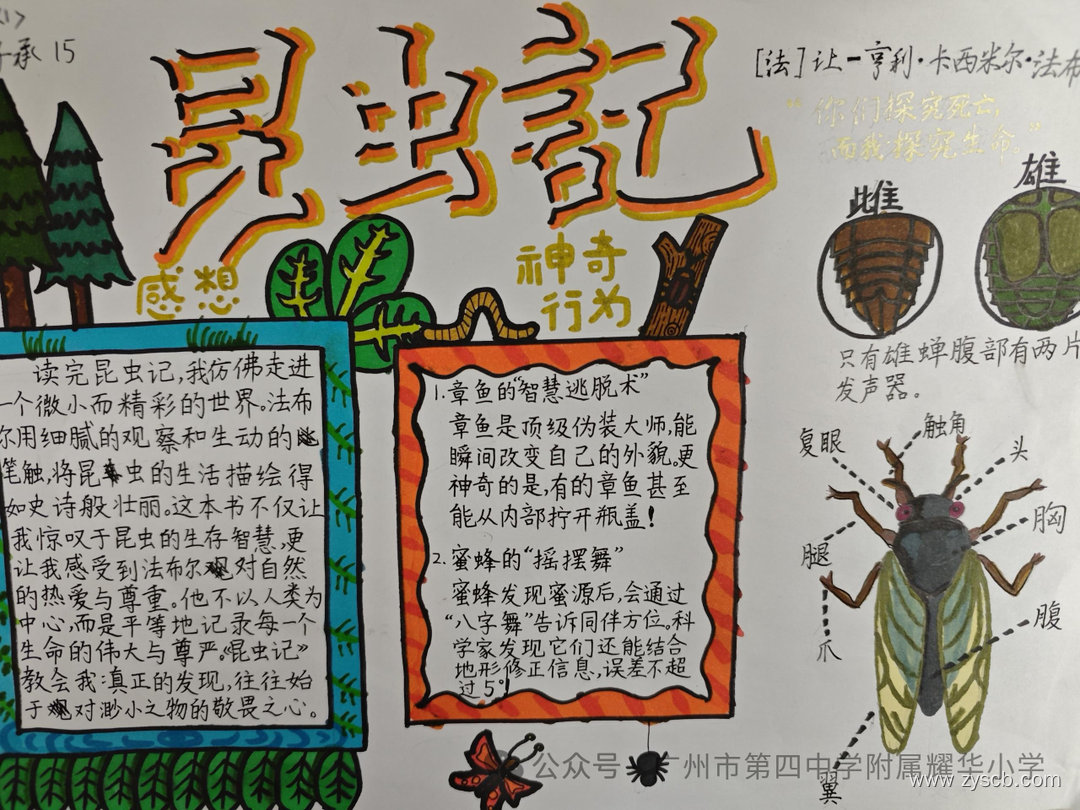 承 15
昆虫記
[法]让-亨利·卡西米尔·法布
“你们探究死亡,
而我探究生命。”
感想
读完昆虫记,我仿佛走进
一个微小而精彩的世界。法布
尔用细腻的观察和生动的
笔触,将昆虫的生活描绘得
如史诗般壮丽。这本书不仅让
我惊叹于昆虫的生存智慧,更
让我感受到法布尔对自然
的热爱与尊重。他不以人类为
中心,而是平等地记录每一个
生命的伟大与尊严。《昆虫记》
教会我:真正的发现,往往始
于对渺小之物的敬畏之心。
神奇
行为
1.章鱼的“智慧逃脱术”
章鱼是顶级伪装大师,能
瞬间改变自己的外貌。更
神奇的是,有的章鱼甚至
能从内部拧开瓶盖!
2.蜜蜂的“摇摆舞”
蜜蜂发现蜜源后,会通过
“八字舞”告诉同伴方位。科
学家发现它们还能结合
地形修正信息,误差不超
过5°!
雌
雄
只有雄蝉腹部有两片
发声器。
触角
复眼
头
胸
腿
腹
爪
翼
公众号
广州市第四中学附属耀华小学
www.zyscb.com